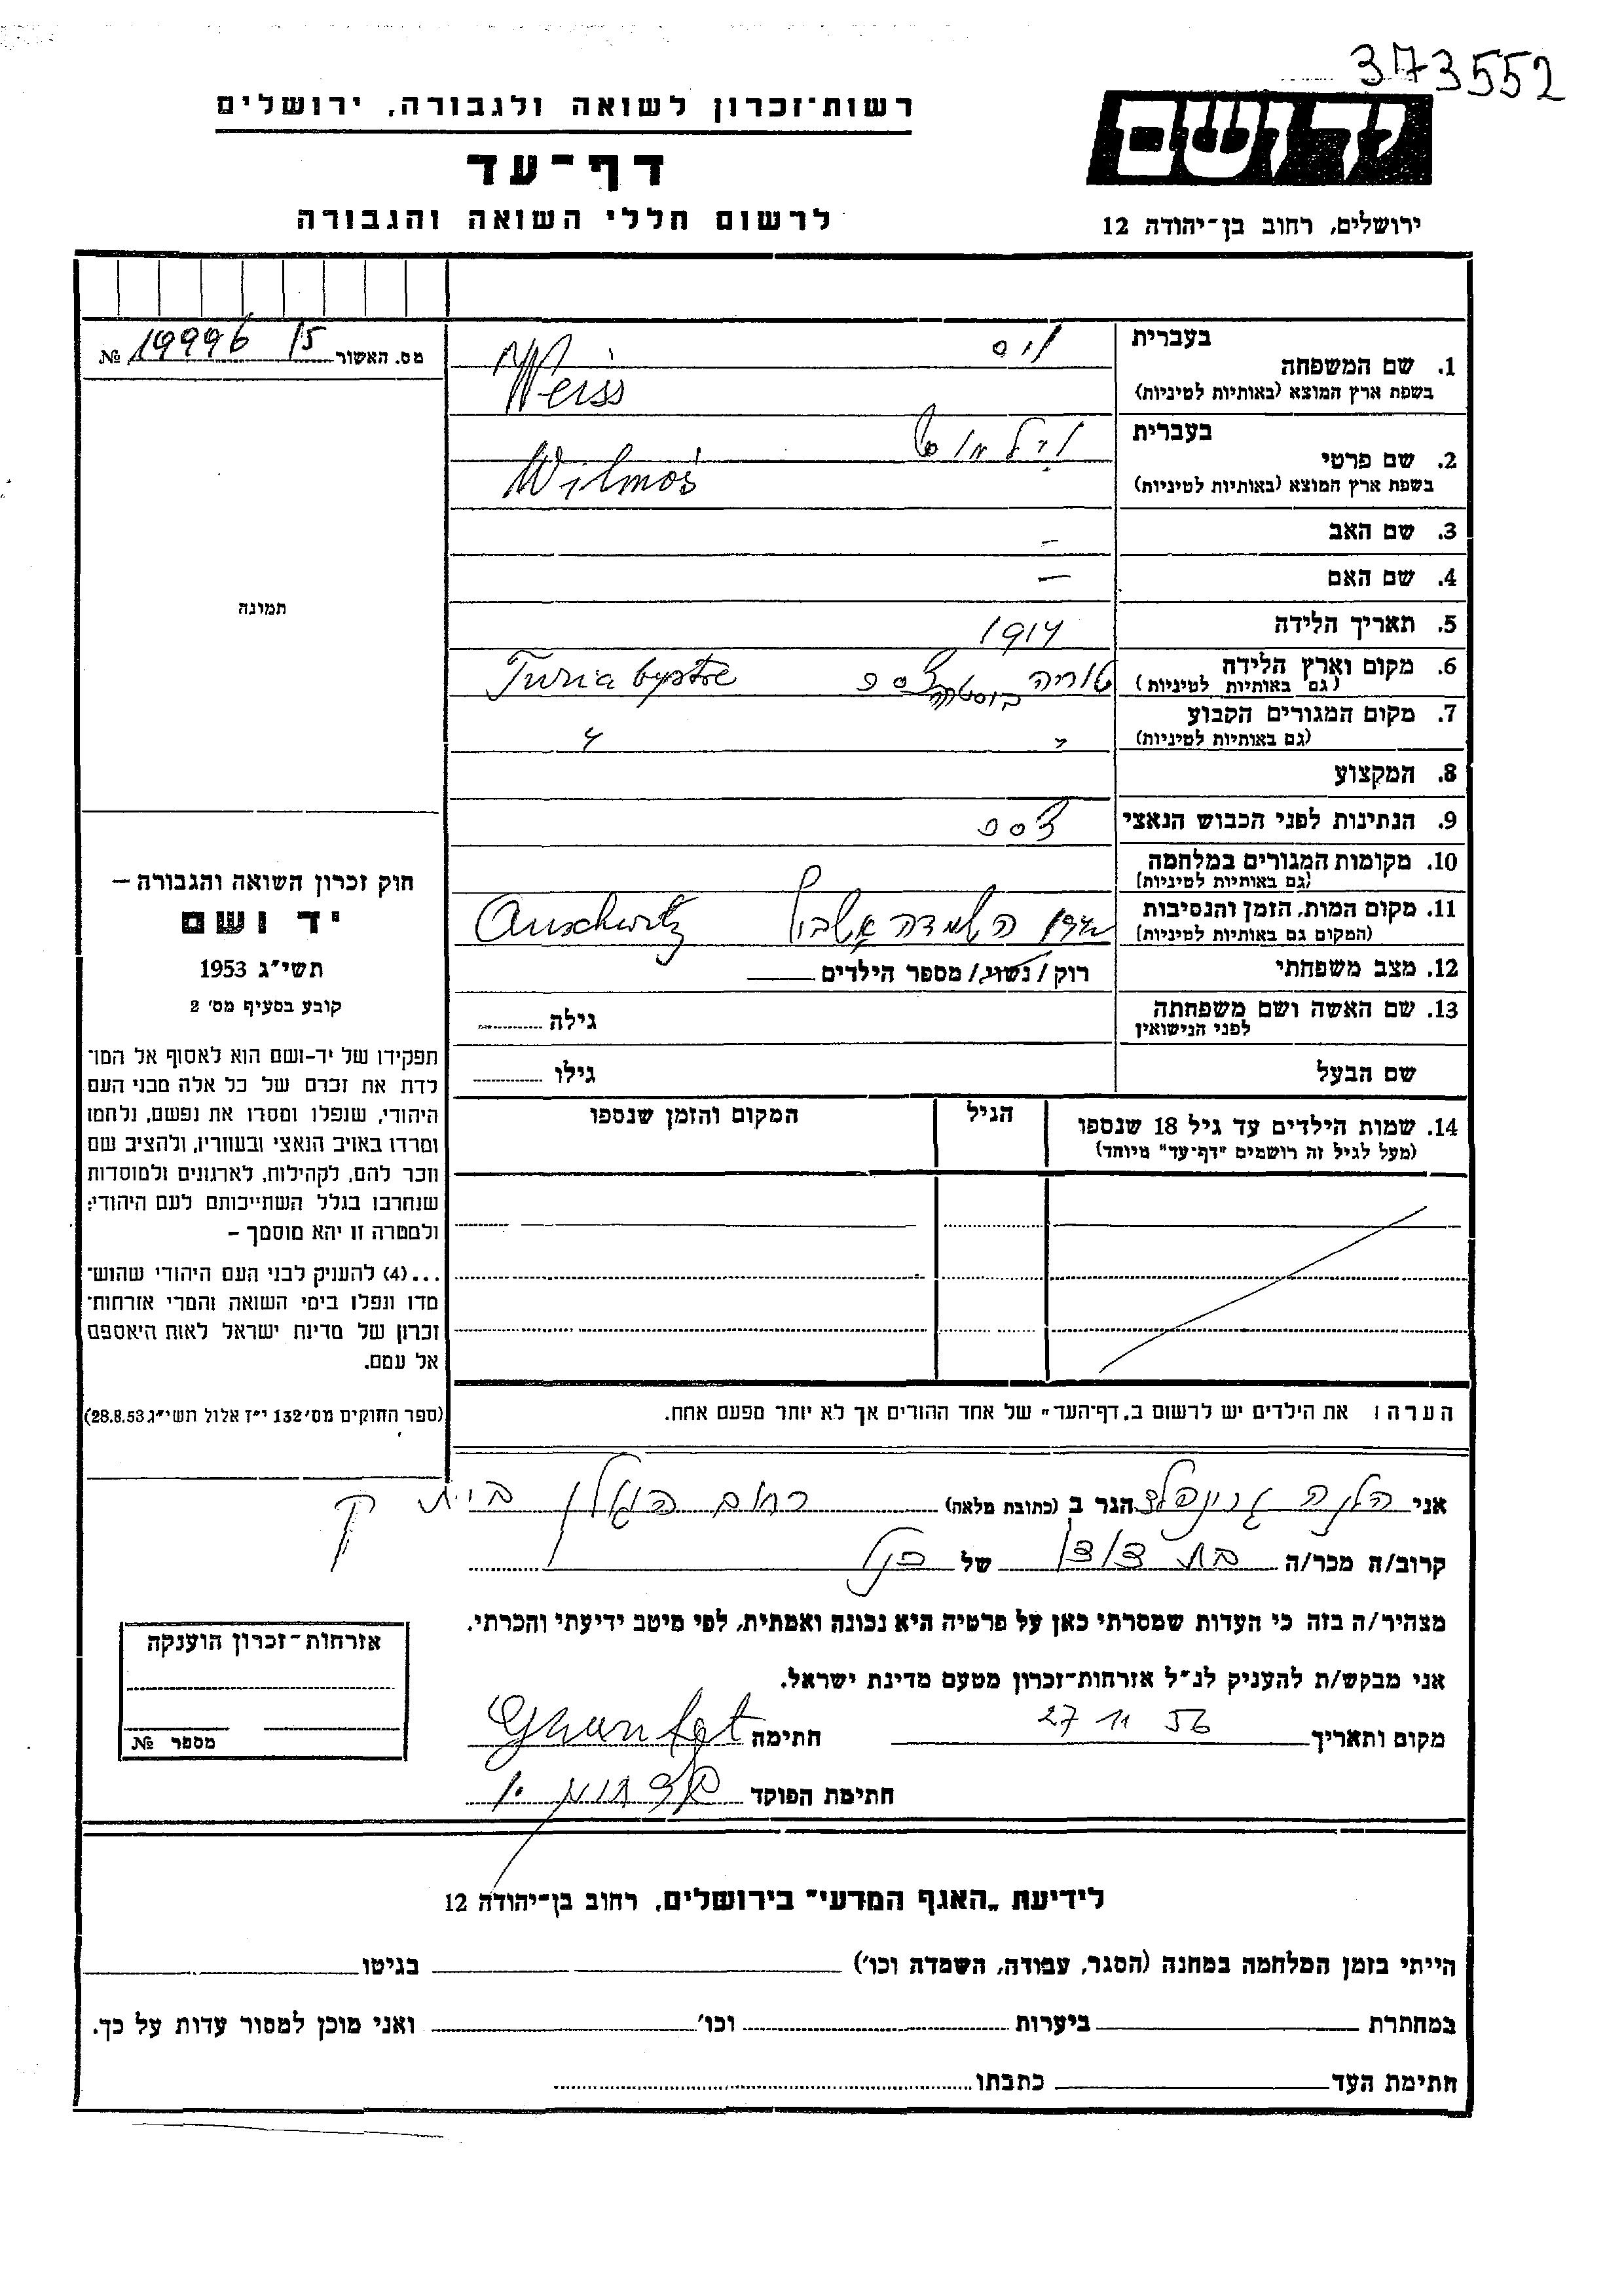 373552
רשות־זכרון לשואה ולגבורה, ירושלים
יד ושם
דף־עד
לרשום חללי השואה והגבורה
ירושלים, רחוב בן־יהודה 12
מס. האשור 15 19996 №
בעברית
ויס
1. שם המשפחה
בשפת ארץ המוצא (באותיות לטיניות)
Weiss
בעברית
וילמוש
2. שם פרטי
בשפת ארץ המוצא (באותיות לטיניות)
Wilmoś
3. שם האב –
4. שם האם –
5. תאריך הלידה 1914
6. מקום וארץ הלידה
(גם באותיות לטיניות)
טוריה ביסטרה צ'ס Turia bystre
7. מקום המגורים הקבוע
(גם באותיות לטיניות)
8. המקצוע
9. הנתינות לפני הכבוש הנאצי
10. מקומות המגורים במלחמה
(גם באותיות לטיניות)
11. מקום המות, הזמן והנסיבות
(המקום גם באותיות לטיניות)
השמדה Auschwitz
12. מצב משפחתי
רוק / נשוי / מספר הילדים
13. שם האשה ושם משפחתה
לפני הנישואין
גילה
שם הבעל
גילו
14. שמות הילדים עד גיל 18 שנספו
(מעל לגיל זה רושמים "דף־עד" מיוחד)
הגיל
המקום והזמן שנספו
הערה: את הילדים יש לרשום ב„דף־העד" של אחד ההורים אך לא יותר מפעם אחת.
תמונה
חוק זכרון השואה והגבורה –
יד ושם
תשי"ג 1953
קובע בסעיף מס' 2
תפקידו של יד-ושם הוא לאסוף אל המו־
לדת את זכרם של כל אלה מבני העם
היהודי, שנפלו ומסרו את נפשם, נלחמו
ומרדו באויב הנאצי ובעוזריו, ולהציב שם
וזכר להם, לקהילות, לארגונים ולמוסדות
שנחרבו בגלל השתייכותם לעם היהודי;
ולמטרה זו יהא מוסמך –
...(4) להעניק לבני העם היהודי שהוש־
מדו ונפלו בימי השואה והמרי אזרחות־
זכרון של מדינת ישראל לאות היאספם
אל עמם.
(ספר החוקים מס' 132 י"ז אלול תשי"ג 28.8.53)
אני הלנה גרינפלד הגר ב (כתובת מלאה) רחוב הגולן בית
קרוב/ה מכר/ה בת דודו של הנ"ל
מצהיר/ה בזה כי העדות שמסרתי כאן על פרטיה היא נכונה ואמתית, לפי מיטב ידיעתי והכרתי.
אני מבקש/ת להעניק לנ"ל אזרחות־זכרון מטעם מדינת ישראל.
מקום ותאריך 27 11 56 חתימה
חתימת הפוקד
אזרחות־זכרון הוענקה
מספר №
לידיעת „האגף המדעי" בירושלים, רחוב בן־יהודה 12
הייתי בזמן המלחמה במחנה (הסגר, עבודה, השמדה וכו') בגיטו
במחתרת ביערות וכו' ואני מוכן למסור עדות על כך.
חתימת העד כתבתו